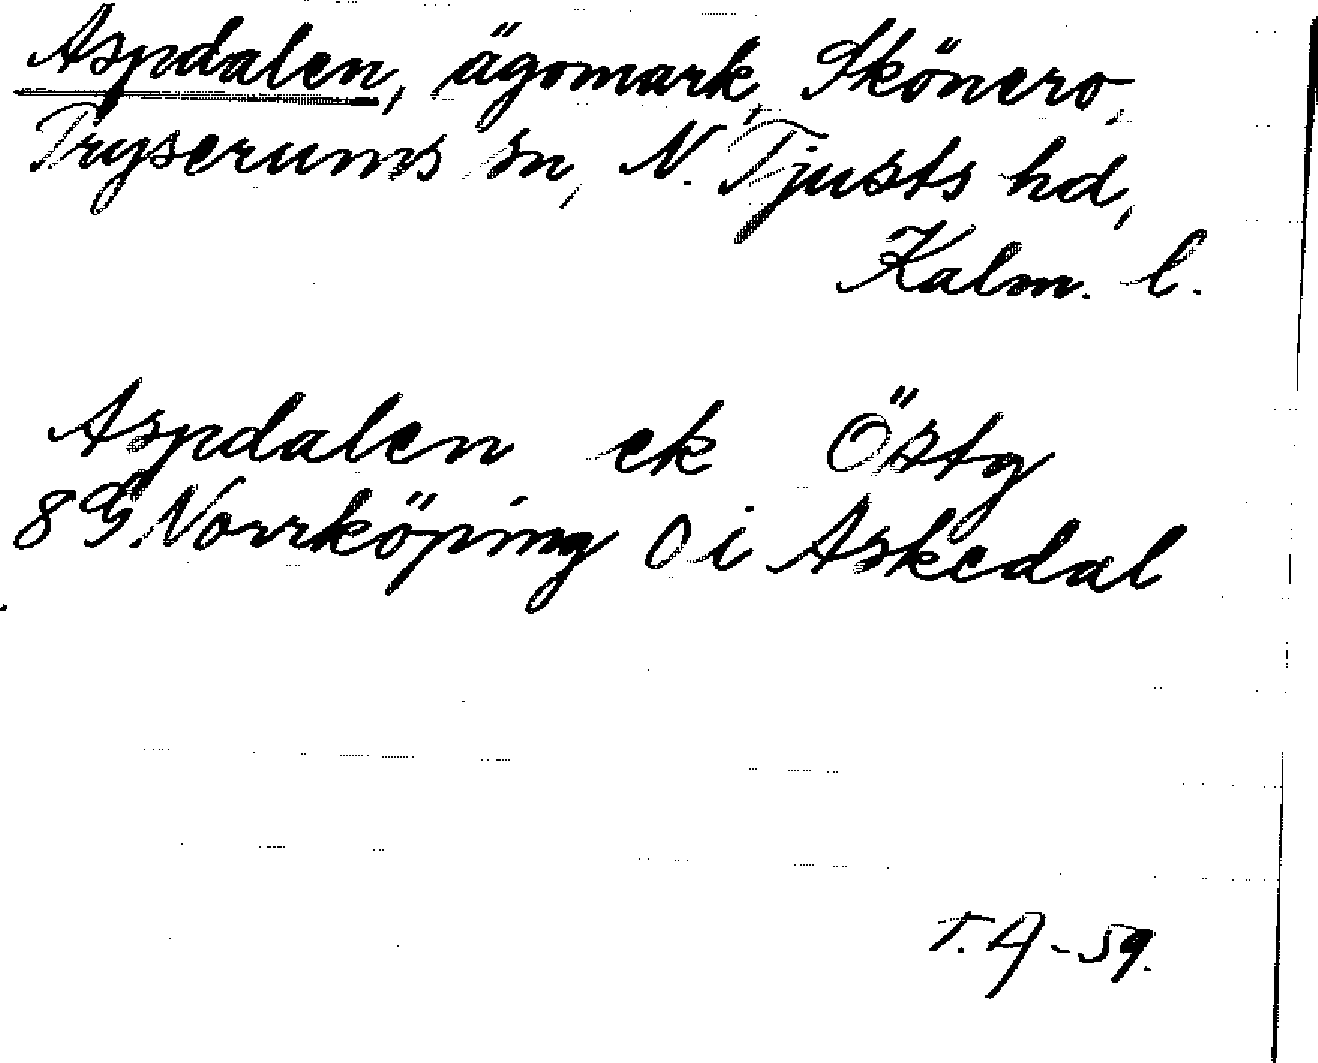 Aspdalen, ägomark, Skönero,
Tryserums sn, N. Tjusts hd,
Kalm. l.
Aspdalen ek Östg
8 G Norrköping Ö i Askedal
T. A - 59.